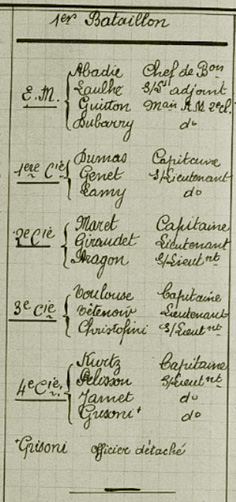 1er Bataillon
E. M. Abadie Chef de Bon
Laulhe S/Lt adjoint
Guitton
Dubarry do
1ere Cie Dumas Capitaine
Genet S/Lieutenant
Lamy do
2e Cie Maret Capitaine
Giraudet Lieutenant
Aragon S/Lieutnt
3e Cie Toulouse Capitaine
Lieutenant
Christofini S/Lieutnt
4e Cie Kurtz Capitaine
Pelisson S/Lieutnt
Jamet do
Grisoni+ do
+Grisoni officier détaché